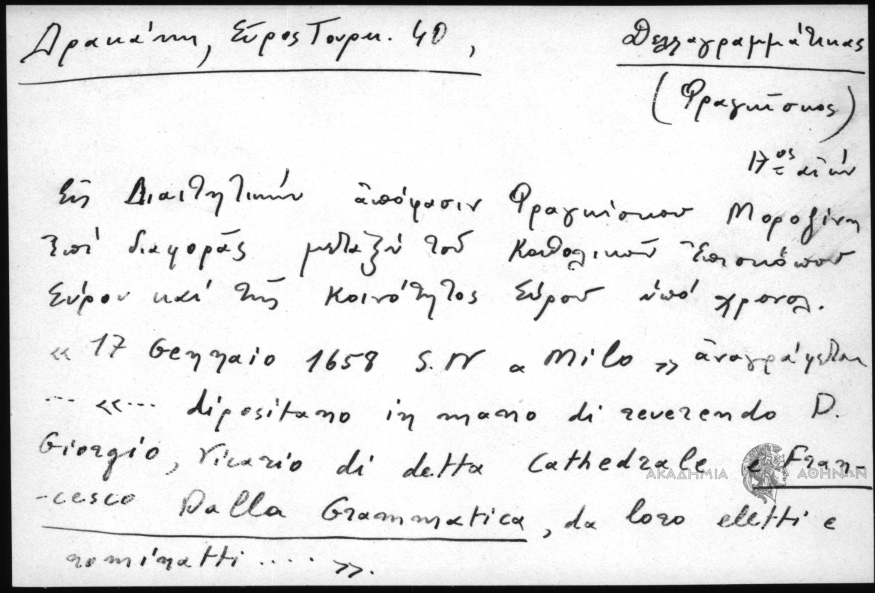 Δρακάκη, Σύρος Τουρκ. 40,
Δελλαγραμμάτικας
(Φραγκίσκος)
17ος αἰών
Εἰς Διαιτητικήν ἀπόφασιν Φραγκίσκου Μοροζίνη
ἐπί διαφορᾶς μεταξύ τοῦ Καθολικοῦ Ἐπισκόπου
Σύρου καί τῆς Κοινότητος Σύρου ὑπό χρονολ.
« 17 Gennaio 1658 S.N a Milo » ἀναγράφεται
... «... dipositano in mano di reverendo D.
Giorgio, vicario di detta Cathedrale e Fran-
-cesco Dalla Grammatica, da loro eletti e
nominatti .... ».
ΑΚΑΔΗΜΙΑ ΑΘΗΝΩΝ